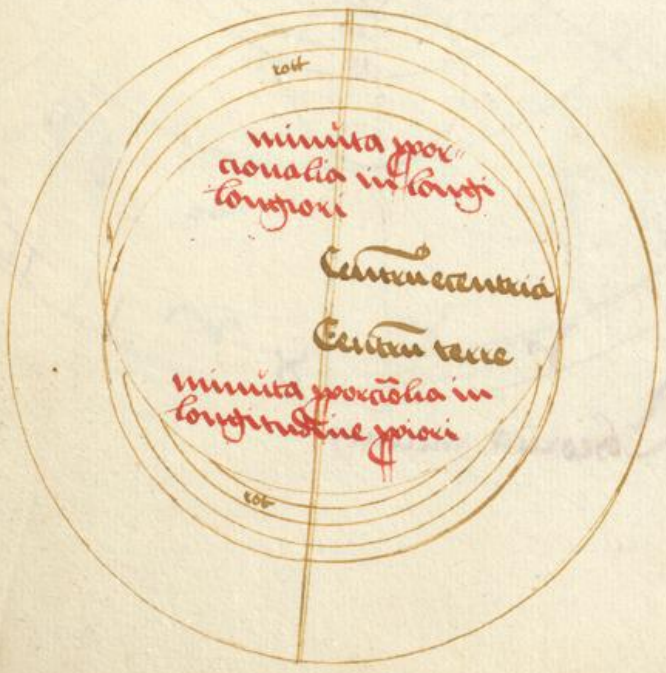 minuta ꝓpor
cionalia in longi
longiori
Centrū ecentrici
Centrū terre
minuta ꝓporciōlia in
longitudine ꝓpiori